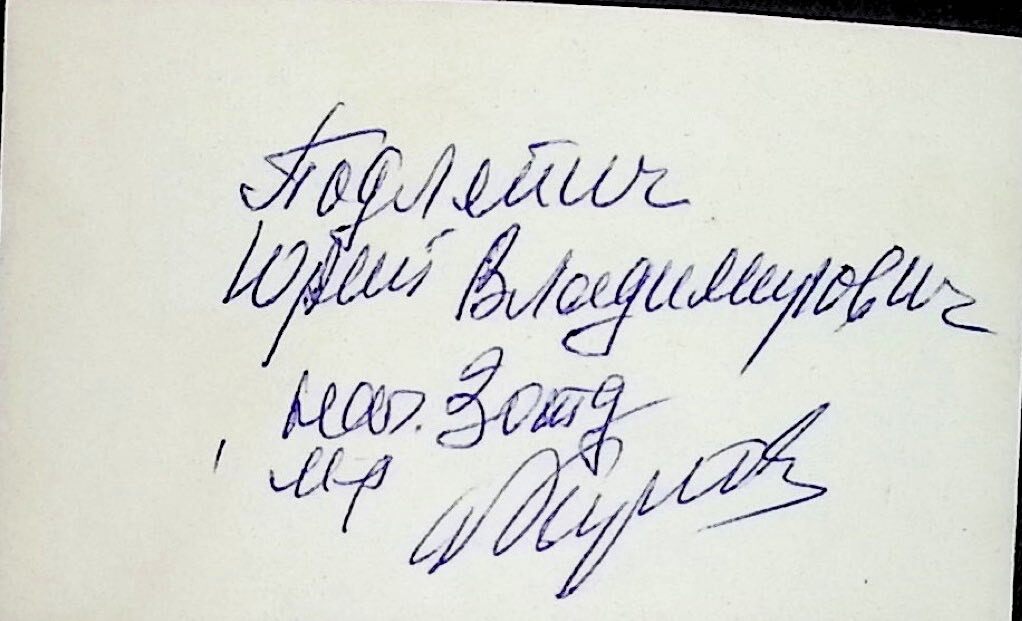 Подлейтич
Юрий Владимирович
нач. 3 отд
м-р